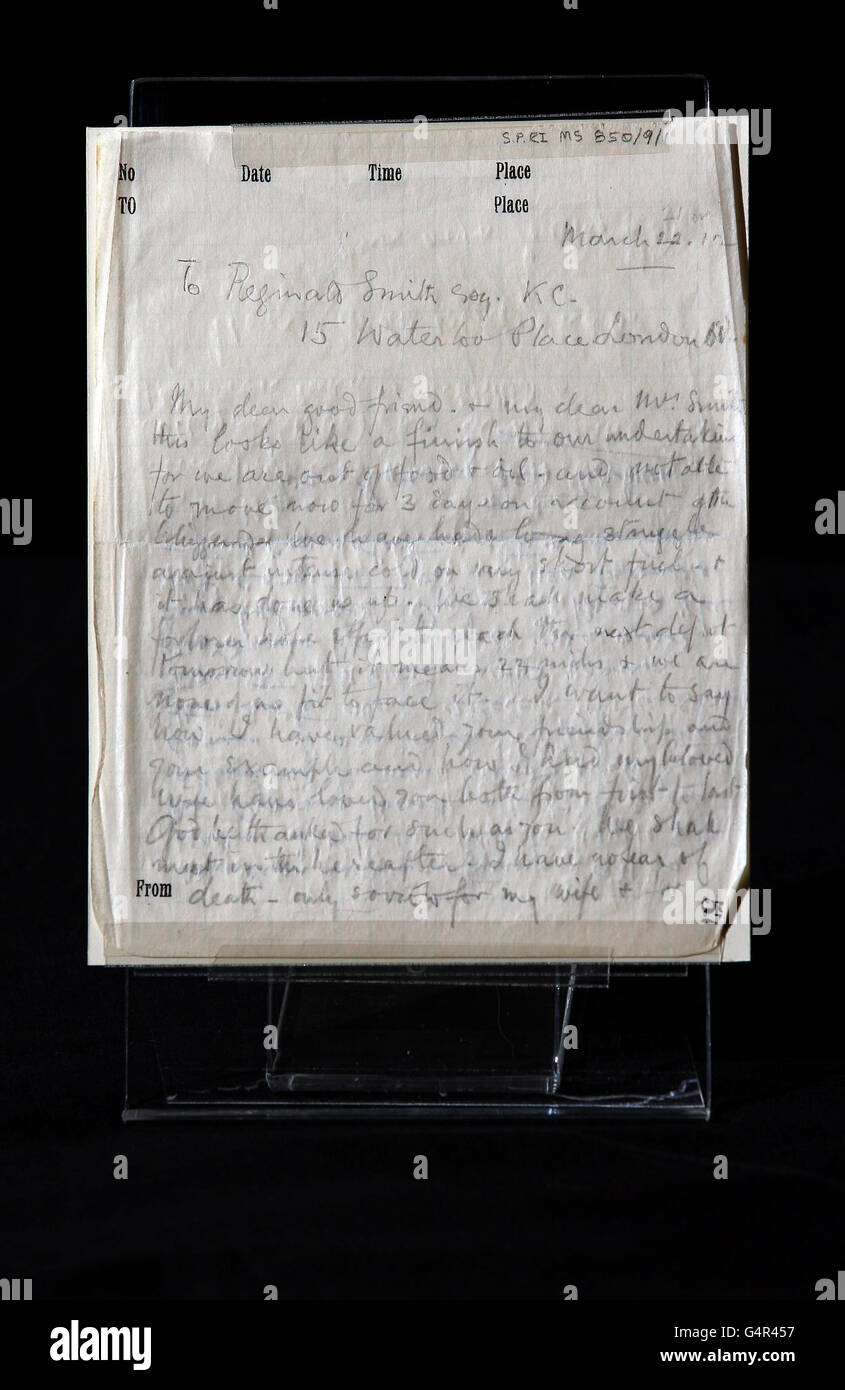 S.P.RI MS 850/9/
No Date Time Place
TO Place
21 or
March 22. 12
To Reginald Smith Esq. KC.
15 Waterloo Place London W.
My dear good friend. & my dear Mrs Smith
this looks like a finish to our undertaking
for we are out of food & oil - and not able
to move now for 3 days on account of the
blizzard. We have had a long struggle
against intense cold on very short fuel &
it has done us up. We shall make a
forlorn hope effort to reach the next depot
tomorrow but it means 22 miles & we are
none of us fit to face it. I want to say
how I have valued your friendship and
your example and how I and my beloved
wife have loved you both from first to last
God be thanked for such as you. We shall
meet in the hereafter. I have no fear of
From death - only sorrow for my wife &
19
alamy
a
Image ID: G4R457
www.alamy.com